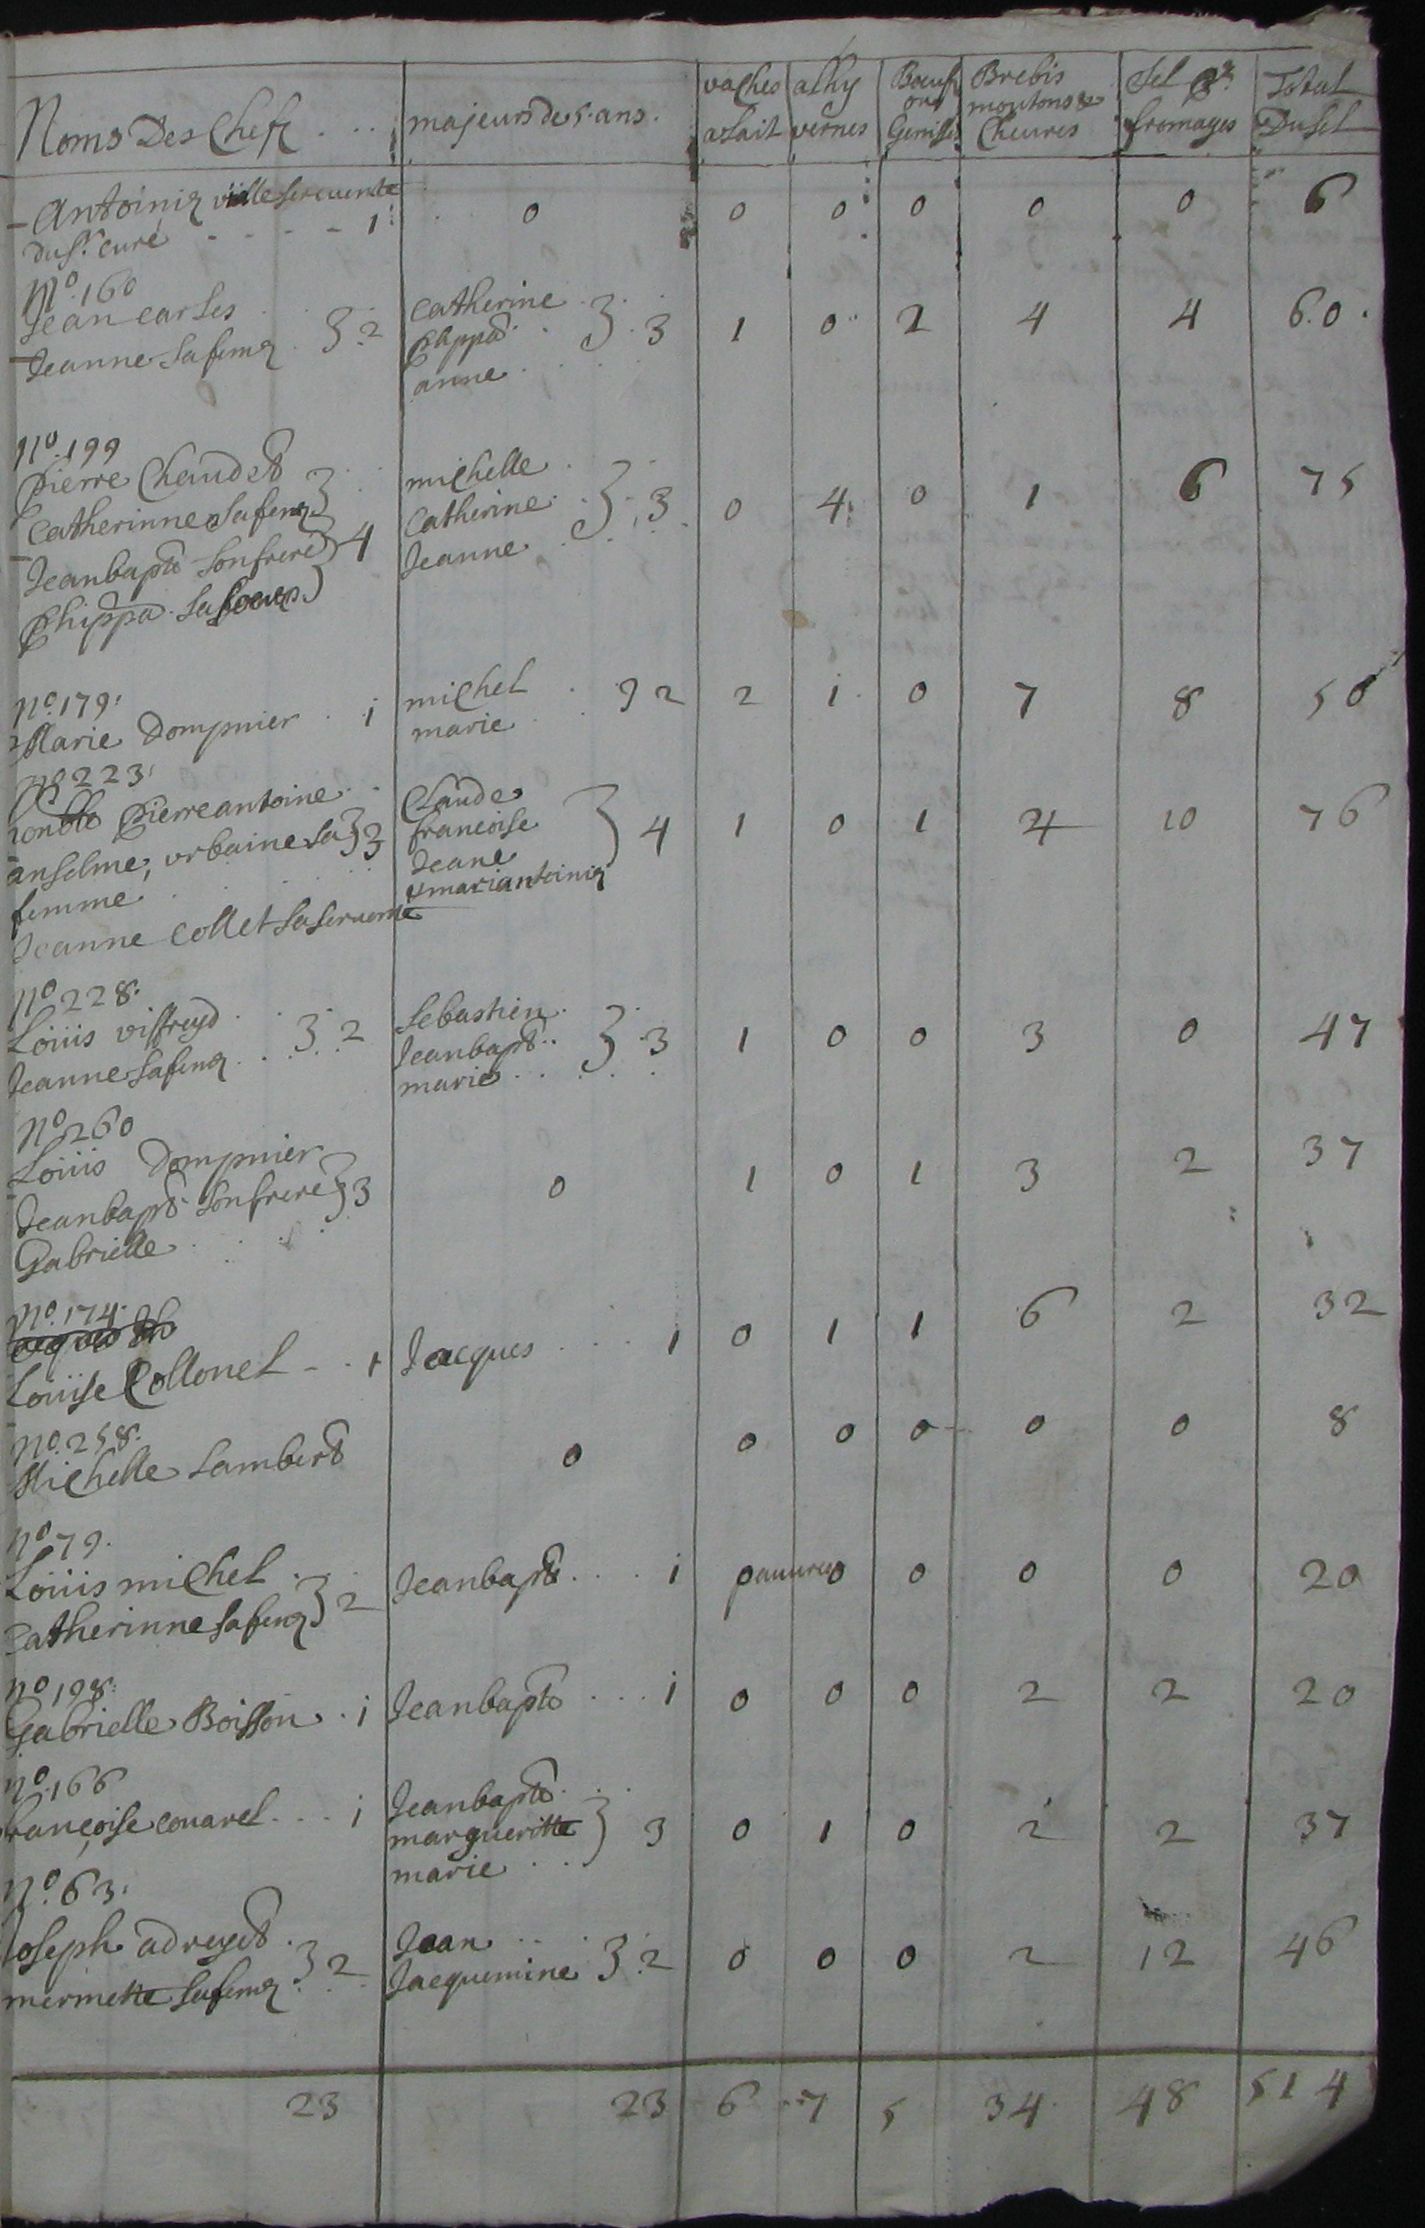 Noms Des Chefs . . . majeurs de 5. ans. vaches a lait | a l'hyvernes | Boeufs ou Genisses | Brebis moutons & Chevres | Sel pr. fromages | Total Du Sel
Antoinia vialle servente
du Sr. curé - - - - 1 0 0 0 0 0 0 6
No. 160
Jean carles
Jeanne sa feme } 2 catherine
Phippa
anne } 3 1 0 2 4 4 60.
No. 199
Pierre Chaudet
Catherinne sa feme
Jeanbapte son frere
Phippa sa soeur } 4 michelle
Catherine
Jeanne } 3 0 4 0 1 6 75
No. 179.
Marie Dompnier . 1 michel
marie } 2 2 1 0 7 8 50
No 223.
honble Pierre antoine
anselme, urbaine sa } 3
femme
Jeanne Collet sa servente Claude
francoise
Jeane
mariantoinia } 4 1 0 1 4 10 76
No 228.
Loüis viffreyd
Jeanne sa feme } 2 Sebastien
Jeanbapt.
marie } 3 1 0 0 3 0 47
No 260
Loüis Dompnier
Jeanbapt son frere } 3
Gabrielle 0 1 0 1 3 2 37
No. 174.
Loüise Collonel - . 1 Jacques . . . 1 0 1 1 6 2 32
No. 258.
Michelle Lambert 0 0 0 0 0 0 8
No 79.
Loüis michel
Catherinne sa feme } 2 Jeanbapte . . . 1 pauvres 0 0 0 0 20
No 198.
Gabrielle Boisson . 1 Jeanbapte . . . 1 0 0 0 2 2 20
No. 166
françoise couarel . . . 1 Jeanbapte
margueritte
marie } 3 0 1 0 2 2 37
No. 63.
Joseph adreyet
mermette sa feme } 2 Jean
Jacquemine } 2 0 0 0 2 12 46
23 23 6 7 5 34 48 514